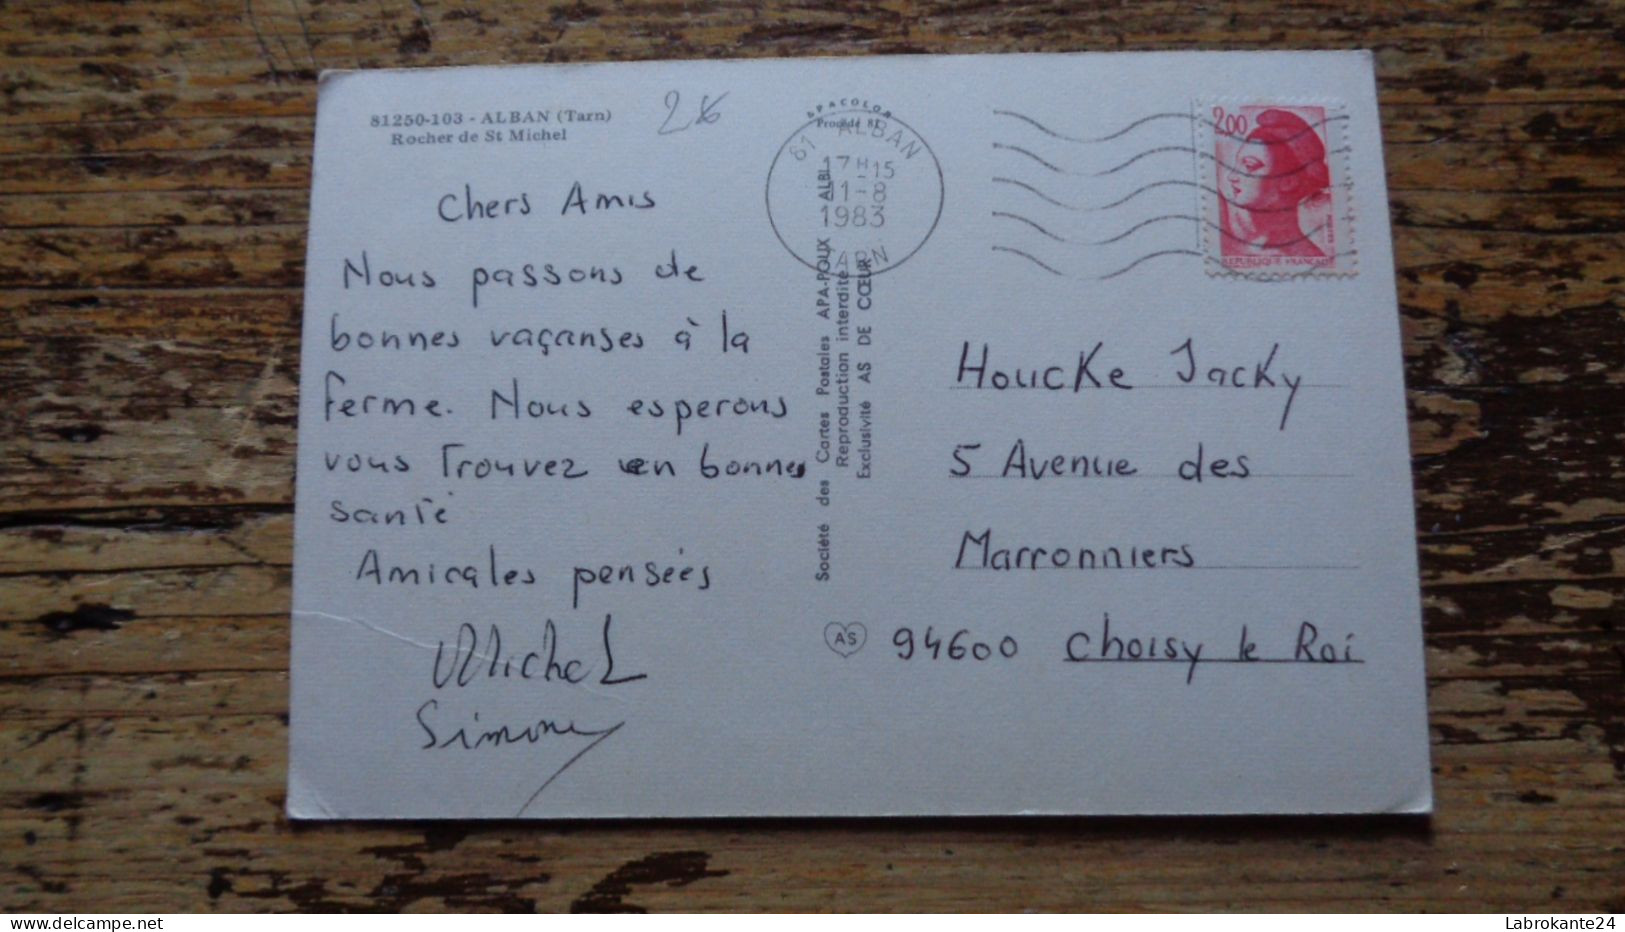 81250-103 - ALBAN (Tarn)
Rocher de St Michel
Chers Amis
Nous passons de
bonnes vaçanses à la
ferme. Nous esperons
vous trouvez en bonnes
santé
Amicales pensées
Michel
Simone
APACOLOR
Procédé 81
81 ALBAN
17H15
11-8
1983
TARN
Société des Cartes Postales APA-POUX ALBI
Reproduction interdite
Exclusivité AS DE CŒUR
AS
2,00
REPUBLIQUE FRANÇAISE
Houcke Jacky
5 Avenue des
Marronniers
94600 Choisy le Roi
Labrokante24